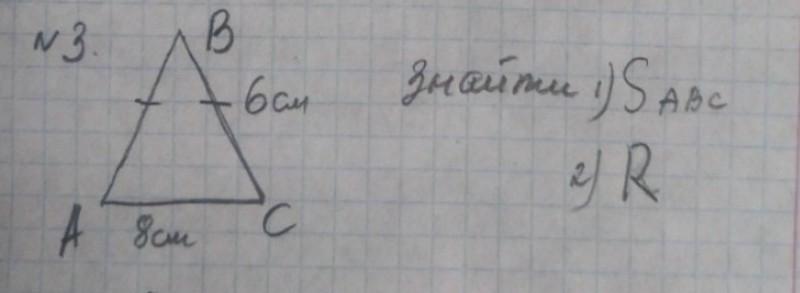 №3.
B
6см
A
8см
C
Знайти 1) S ABC
2) R